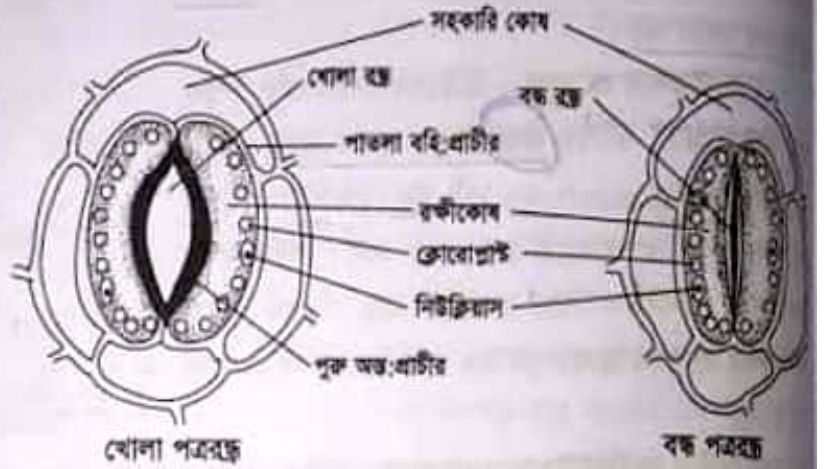 সহকারি কোষ
খোলা রন্ধ্র
বদ্ধ রন্ধ্র
পাতলা বহি:প্রাচীর
রক্ষীকোষ
ক্লোরোপ্লাস্ট
নিউক্লিয়াস
পুরু অন্ত:প্রাচীর
খোলা পত্ররন্ধ্র
বদ্ধ পত্ররন্ধ্র